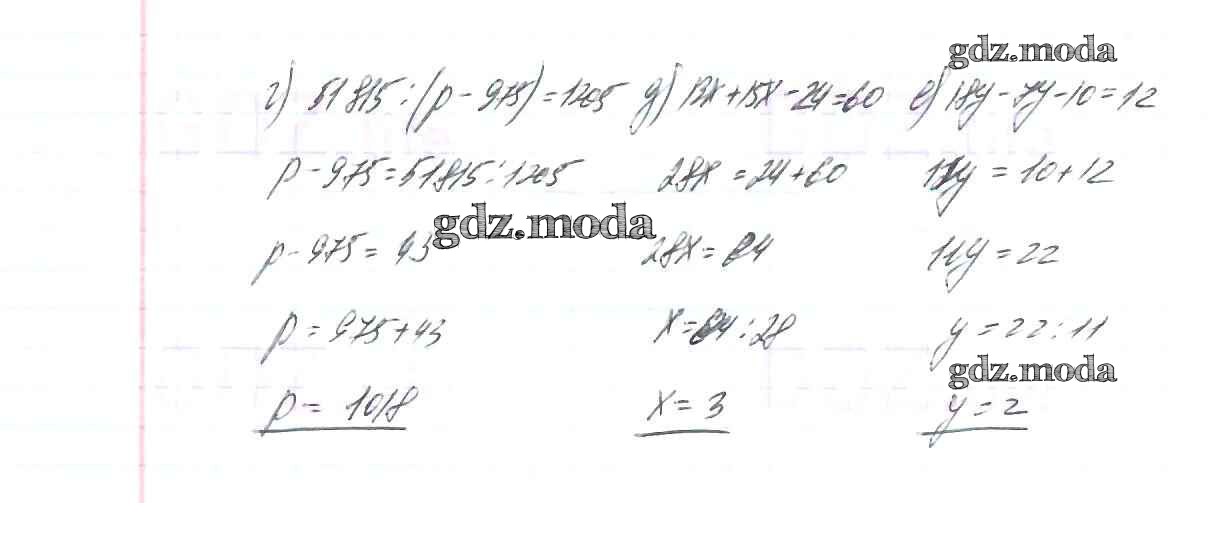 gdz.moda
г) 51815 : (p - 975) = 1205
p - 975 = 51815 : 1205
p - 975 = 43
p = 975 + 43
p = 1018
д) 13x + 15x - 24 = 60
28x = 24 + 60
28x = 84
x = 84 : 28
x = 3
е) 18y - 7y - 10 = 12
11y = 10 + 12
11y = 22
y = 22 : 11
y = 2
gdz.moda
gdz.moda